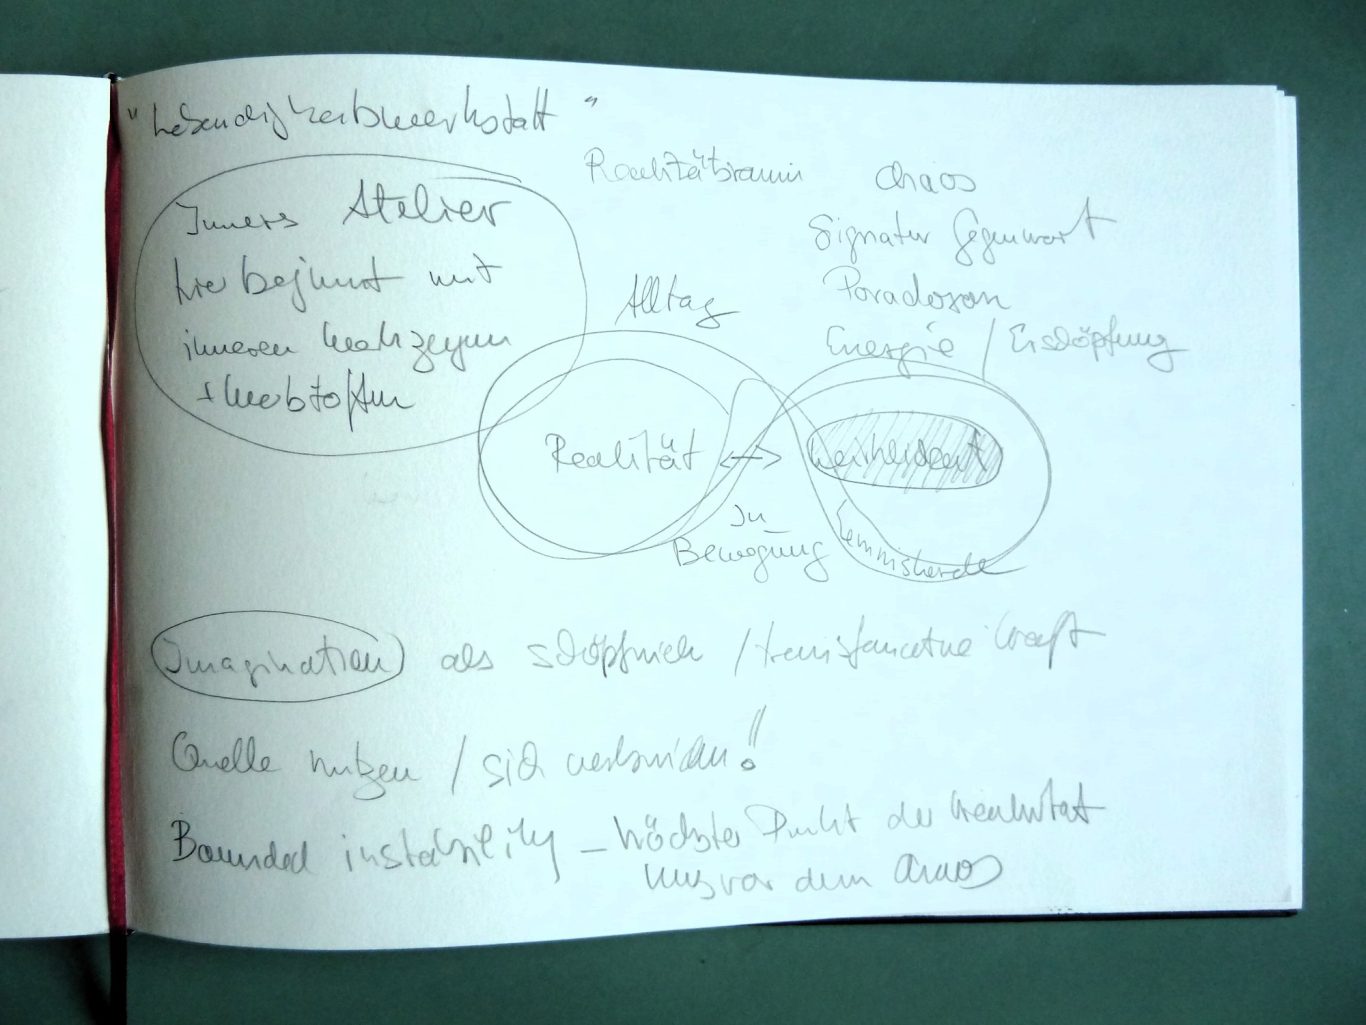 "Lebendigkeitswerkstatt"
Realitätsraum
Chaos
Inneres Atelier
hier beginnt mit
inneren Werkzeugen
+ Werkstoffen
Signatur Gegenwart
Paradoxon
Energie / Erschöpfung
Alltag
Realität ↔
In
Bewegung
Lemniskate
Imagination als schöpferisch / transformative Kraft
Quelle nutzen / sich verbinden!!
Bounded instability – höchster Punkt der Kreativität
kurz vor dem Chaos